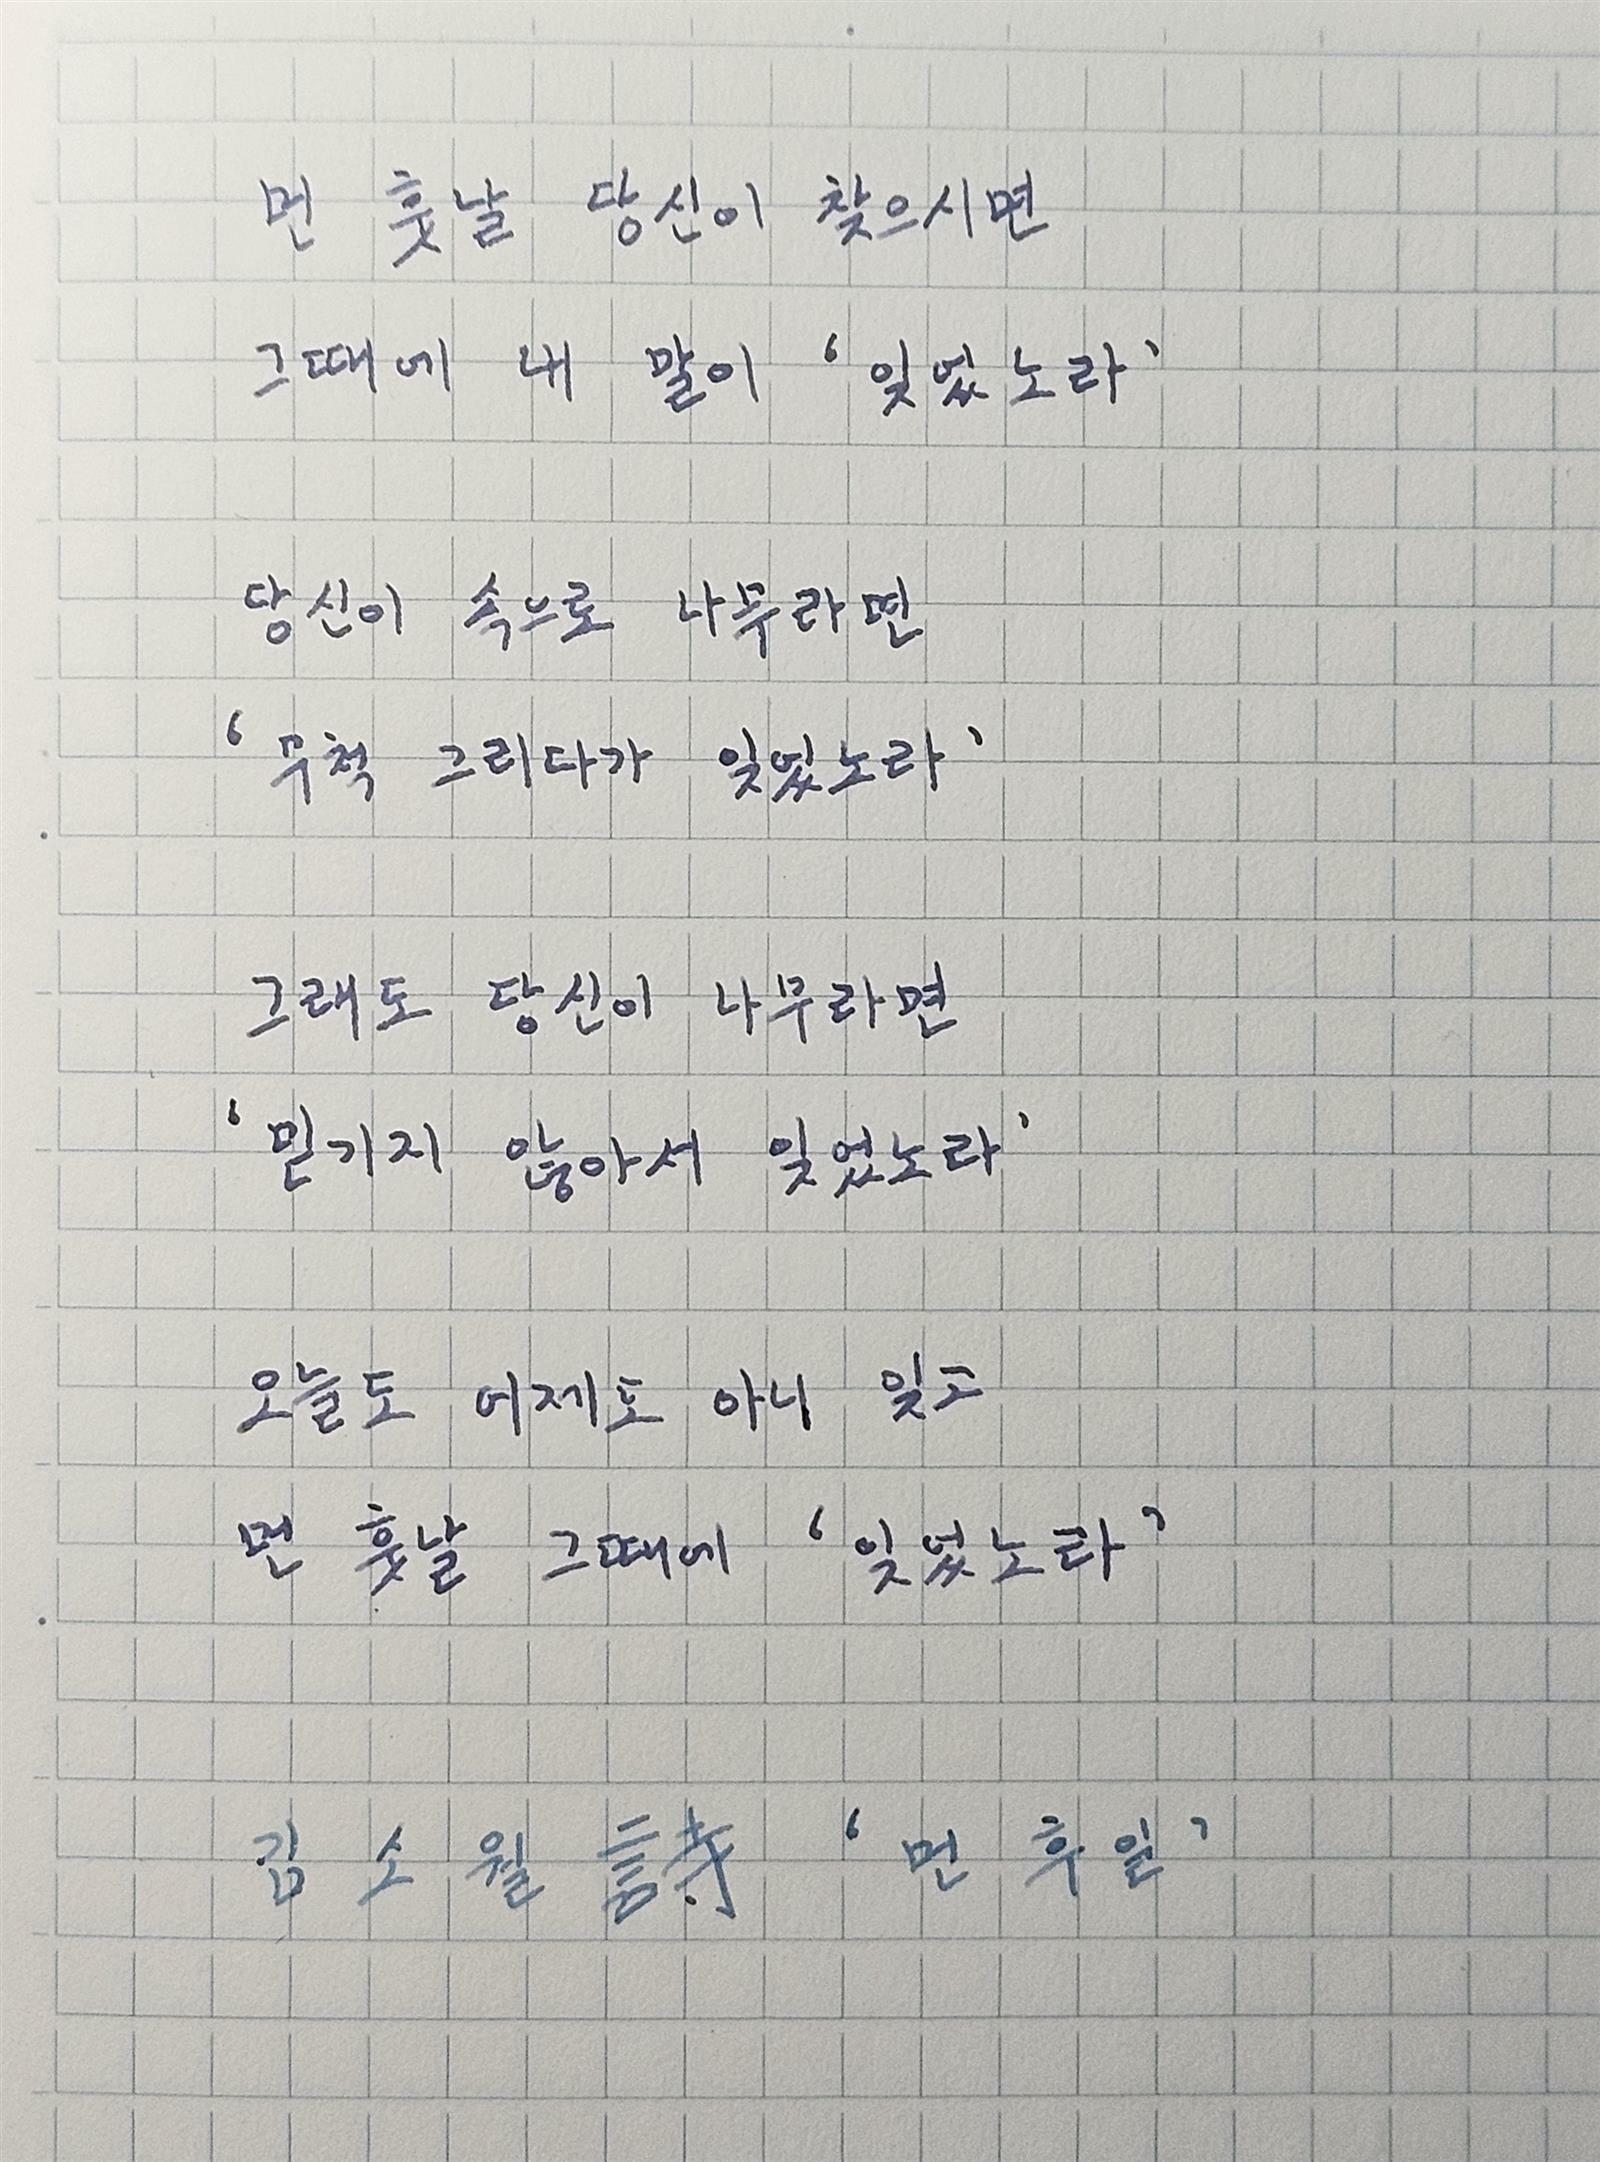 먼 훗날 당신이 찾으시면
그때에 내 말이 ‘잊었노라’
당신이 속으로 나무라면
‘무척 그리다가 잊었노라’
그래도 당신이 나무라면
‘믿기지 않아서 잊었노라’
오늘도 어제도 아니 잊고
먼 훗날 그때에 ‘잊었노라’
김소월 詩 ‘먼 후일’